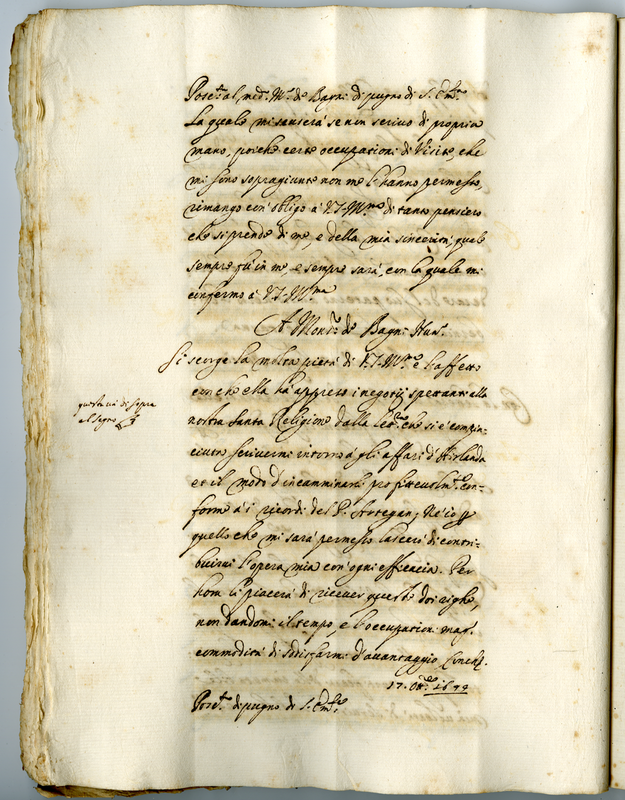 Posc.ta al med.o M.r de Bagni di pugno di S. Em.za
La quale mi scuserà se non scrivo di propria
mano, poiche certe occupationi di Visite, che
mi sono sopragiunte non me l'hanno permesso,
rimango con obligo à V.S. Ill.ma di tanto pensiero
che si prende di me, e della mia sincerità, quale
sempre fù in me e sempre sarà, con la quale mi
confermo à V.S. Ill.ma
A Mons.r de Bagni Nun.o
Si scorge la molta pietà di V.S. Ill.ma e l'affetto
con che ella hà appreso i negotij spettanti alla
nostra Santa Religione dalla let.ra che si è compia-
ciuta scrivermi intorno à gli affari d'Hirlanda
et il modo d'incamminarli profittevolm.te con-
forme à i ricordi del P. Hartegan; Nè io p
quello che mi sarà permesso lascerò di contri-
buirvi l'opera mia con ogni efficacia. Per
hora li piacerà di ricever queste doi righe,
non dandomi il tempo, e l'occupationi mag.r
commodità di sodisfarmi d'avantaggio
17. 1644
Posc.ta di pugno di S. Em.za
questa và di sopra
al segno